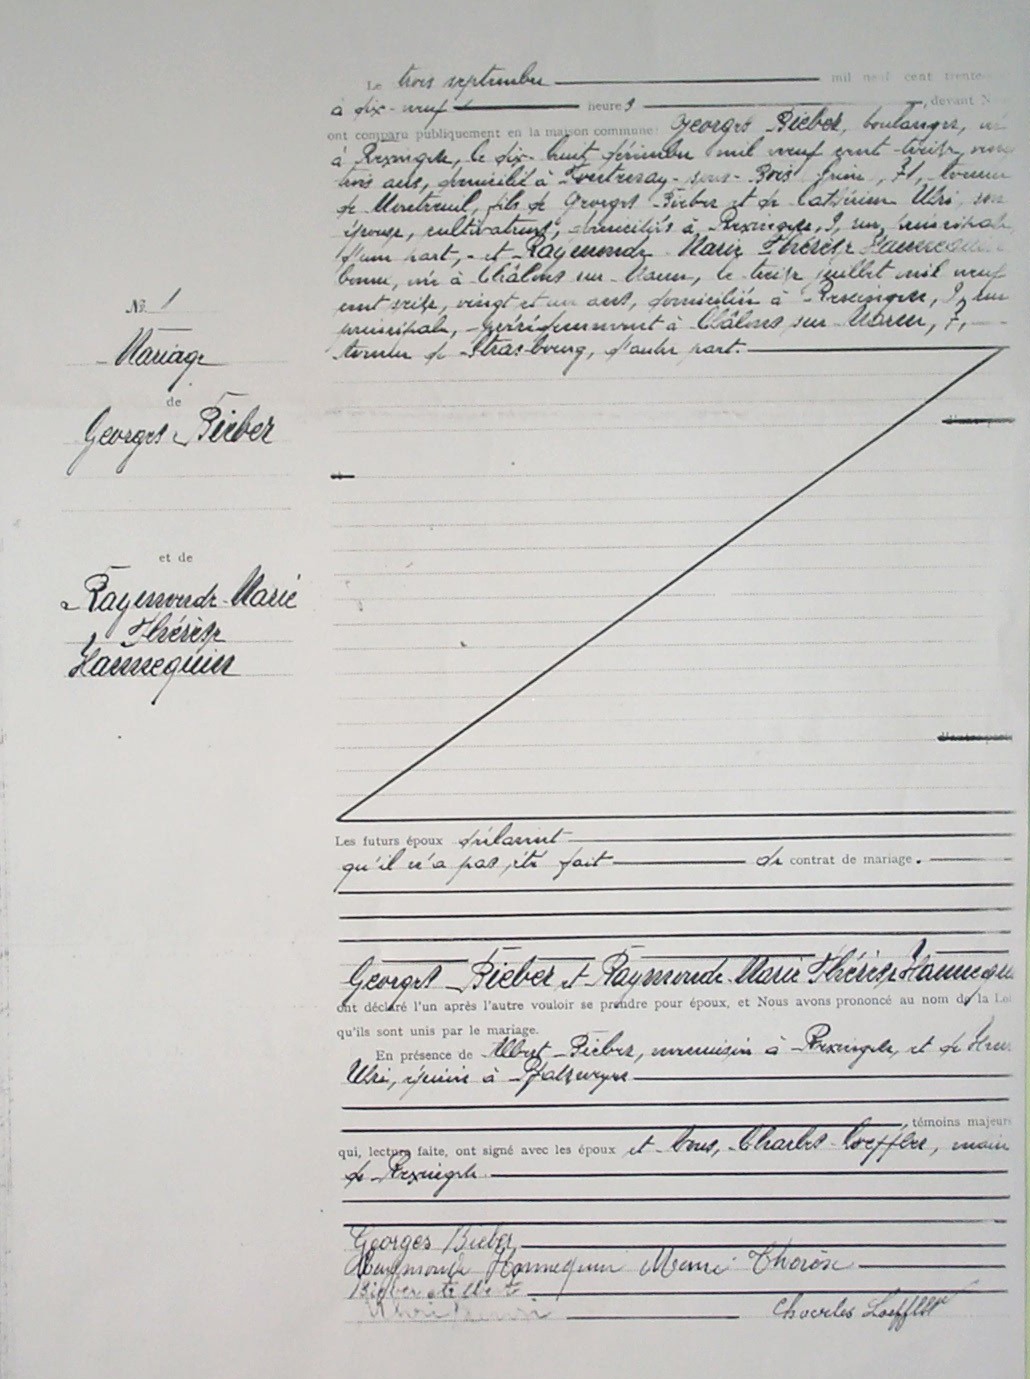 Le trois septembre mil neuf cent trente
à dix-neuf heures, devant N
ont comparu publiquement en la maison commune: Georges Bieber, boulanger, né
à Rexingen, le dix-huit décembre mil neuf cent treize, vingt
trois ans, domicilié à Fontenay-sous-Bois Seine, 71,
de Montreuil, fils de Georges Bieber et de Cathérine Uhri, son
épouse, cultivateurs, domiciliés à Rexingen, 9, rue principale
d'une part, et Raymonde Marie Thérèse Hannequin
bonne, née à Châlons sur Marne, le treize juillet mil neuf
cent seize, vingt et un ans, domiciliée à Rexingen, 9, rue
principale, précédemment à Châlons sur Marne, 7,
de Strasbourg, d'autre part.
No. 1
Mariage
de
Georges Bieber
et de
Raymonde Marie
Thérèse
Hannequin
Les futurs époux déclarent
qu'il n'a pas été fait de contrat de mariage.
Georges Bieber et Raymonde Marie Thérèse Hannequin
ont déclaré l'un après l'autre vouloir se prendre pour époux, et Nous avons prononcé au nom de la Loi
qu'ils sont unis par le mariage.
En présence de Albert Bieber, menuisier à Rexingen, et de Henri
Uhri, épicier à Pfalzweyer
témoins majeurs
qui, lecture faite, ont signé avec les époux et Nous, Charles Loeffler, maire
de Rexingen.
Georges Bieber
Raymonde Hannequin Marie Thérèse
Bieber
Uhri Henri Charles Loeffler